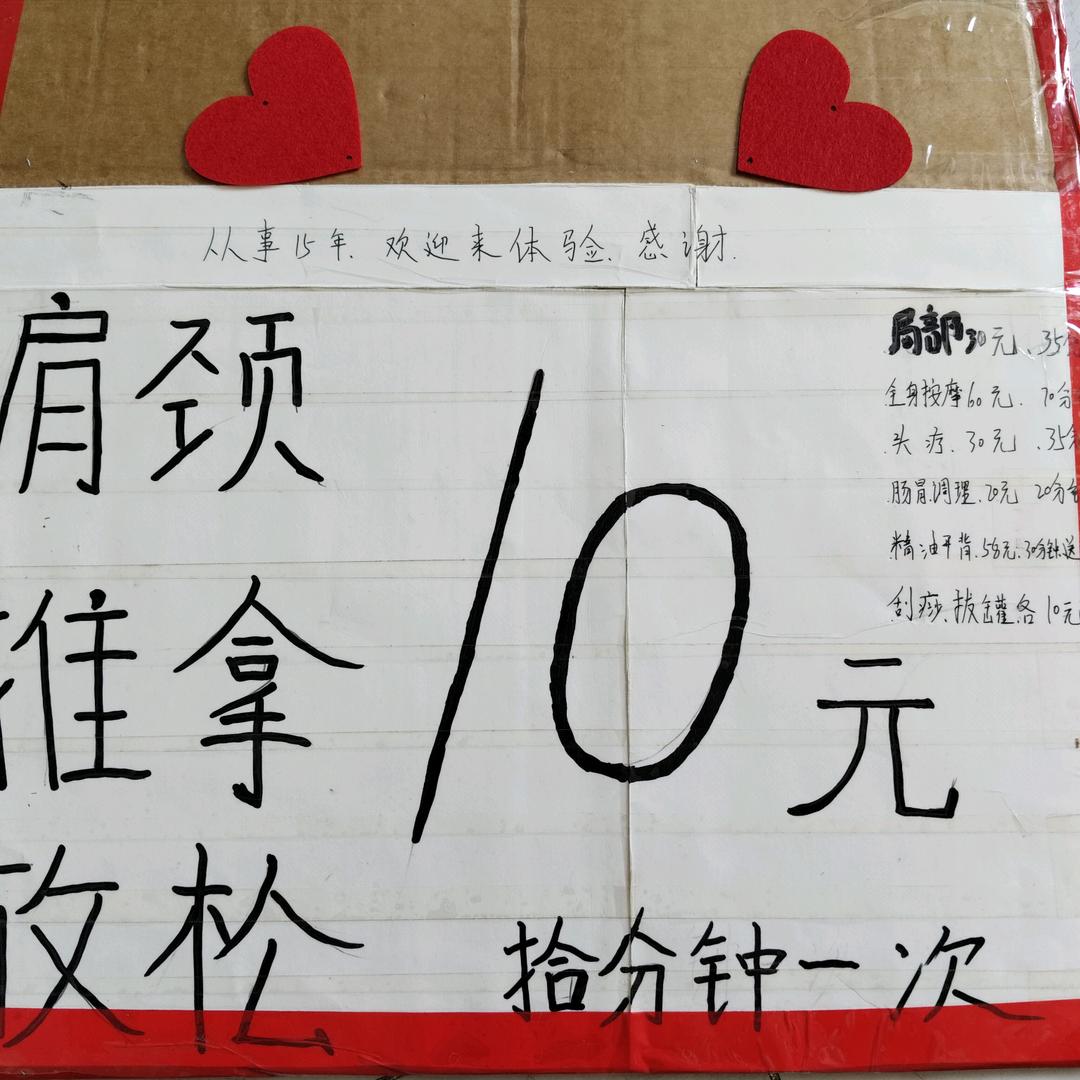 从事15年.欢迎来体验.感谢.
肩颈
推拿
放松
10元
拾分钟一次
局部30元、35分
全身按摩60元、70分
头疗、30元、35分
肠胃调理、20元 20分钟
精油开背、58元、30分钟送
刮痧、拔罐各10元